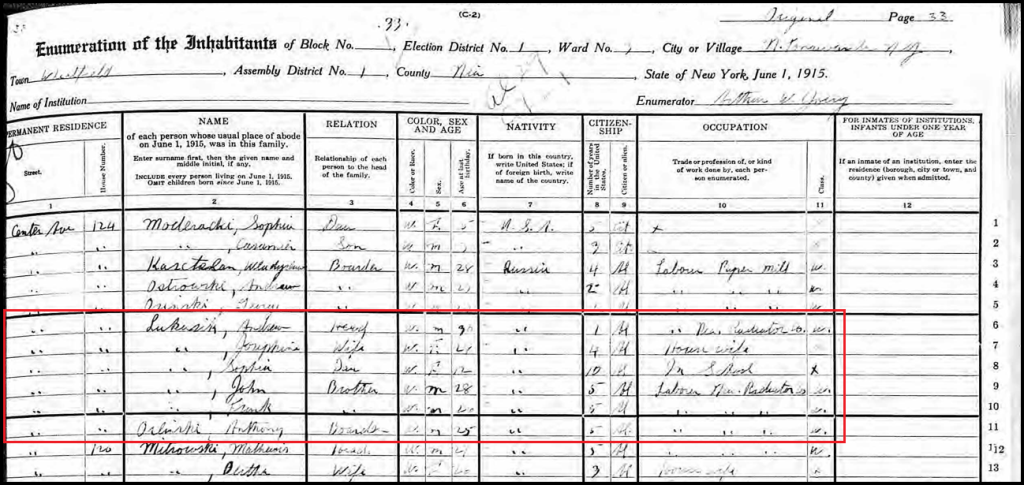 33. (C-2) Original Page 33
Enumeration of the Inhabitants of Block No. 1, Election District No. 1, Ward No. , City or Village N. Tonawanda N.Y.,
Town Wheatfield, Assembly District No. 1, County Nia, State of New York, June 1, 1915.
Name of Institution Enumerator Arthur W.
PERMANENT RESIDENCE NAME RELATION COLOR, SEX AND AGE NATIVITY CITIZEN-SHIP OCCUPATION FOR INMATES OF INSTITUTIONS, INFANTS UNDER ONE YEAR OF AGE
Street. House Number. of each person whose usual place of abode on June 1, 1915, was in this family.
Enter surname first, then the given name and middle initial, if any.
INCLUDE every person living on June 1, 1915. OMIT children born since June 1, 1915.
Relationship of each person to the head of the family.
Color or Race. Sex. Age at last birthday.
If born in this country, write United States; if of foreign birth, write name of the country.
Number of years in the United States. Citizen or alien.
Trade or profession of, or kind of work done by, each person enumerated. Class.
If an inmate of an institution, enter the residence (borough, city or town, and county) given when admitted.
1 2 3 4 5 6 7 8 9 10 11 12
Center Ave 124 Moderacki, Sophia Dau W. F 5 U.S.A. 5 Cit x 1
" " " , Casimier Son W. m " Cit 2
" " , Wladyslaw Boarder W. m 28 Russia 4 Al Labour Paper Mill W. 3
" " Ostrowski, Andrew " W m " 2 Al " " " W. 4
" " Osinski, " " 5
" " Lukasik, Andrew Head W. m " 1 Al " Nia. Radiator Co. W. 6
" " " , Josephine Wife W. F " 4 Al House wife 7
" " " , Sophia Dau W. F 12 " 10 Al In School x 8
" " " , John Brother W. m 28 " 5 Al Labour Nia. Radiator W. 9
" " " , Frank " W. m 20 " 5 Al " " " W. 10
" " Osinski, Anthony Boarder W. m 25 " 5 Al " " " W. 11
" 120 Mitrowski, Head W. m " 5 Al " " " W. 12
" " " , Bertha Wife W. F " 3 Al House wife x 13